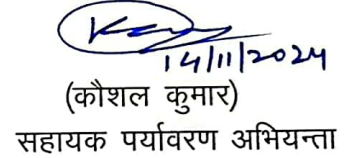 14/11/2024
(कौशल कुमार)
सहायक पर्यावरण अभियन्ता